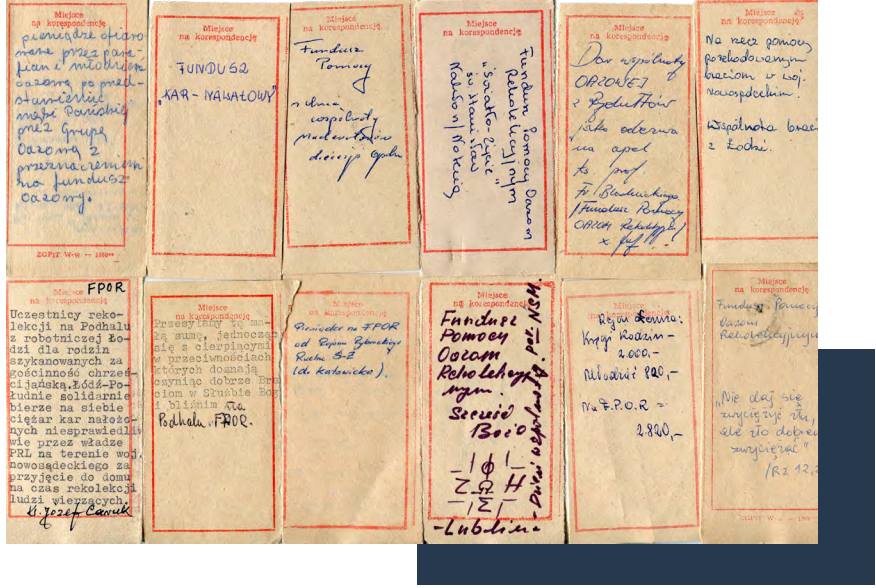 Miejsce
na korespondencję
pieniądze ofiaro
wane przez para-
fian i młodzież
oazową po przed-
stawieniu
męki Pańskiej
przez Grupę
Oazową z
przeznaczeniem
na fundusz
Oazowy.
Miejsce
na korespondencję
FUNDUSZ
"KAR-NAWAŁOWY"
Miejsce
na korespondencję
Fundusz
Pomocy
z dnia
wspólnoty
diecezji
Miejsce
na korespondencję
Fundusz Pomocy Oazom
Rekolekcyjnym
"Światło-Życie"
św. Stanisław
Miejsce
na korespondencję
Dar wspólnoty
OAZOWEJ
z Rydułtów
jako odezwa
na apel
ks. prof.
Fr. Blachnickiego
/Fundusz Pomocy
OAZOM Rekolekcyj/
Miejsce
na korespondencję
Na rzecz pomocy
poszkodowanym
braciom w woj.
nowosądeckim.
Wspólnota braci
z Łodzi.
FPOR
Miejsce
na korespondencję
Uczestnicy reko-
lekcji na Podhalu
z robotniczej Ło-
dzi dla rodzin
szykanowanych za
gościnność chrześ-
cijańską.Łódź-Po-
łudnie solidarnie
bierze na siebie
ciężar kar nałożo-
nych niesprawiedli
wie przez władze
PRL na terenie woj.
nowosądeckiego za
przyjęcie do domu
na czas rekolekcji
ludzi wierzących.
Józef
Miejsce
na korespondencję
Przesyłamy tę ma-
łą sumę, jednocząc
się z cierpiącymi
w przeciwnościach
których doznają
czyniąc dobrze Bra
ciom w Służbie Bog
i bliźnim dla
Podhalu. FPOR.
Miejsce
na korespondencję
Pieniądze na FPOR
od Rejonu Rybnickiego
Ruchu Ś-Ż
(do Katowicka).
Miejsce
na korespondencję
Fundusz
Pomocy
Oazom
Rekolekcyj
nym.
Szczęść
Boże
-Lublin-
Miejsce
na korespondencję
Rejon
Kręgi Rodzin -
2.000,-
Młodzież 820,-
Na F.P.O.R =
2.820,-
Miejsce
na korespondencję
Fundusz Pomocy
Oazom
Rekolekcyjnym
"Nie daj się
zwyciężyć złu,
ale zło dobrem
zwyciężaj"
/Rz 12,2